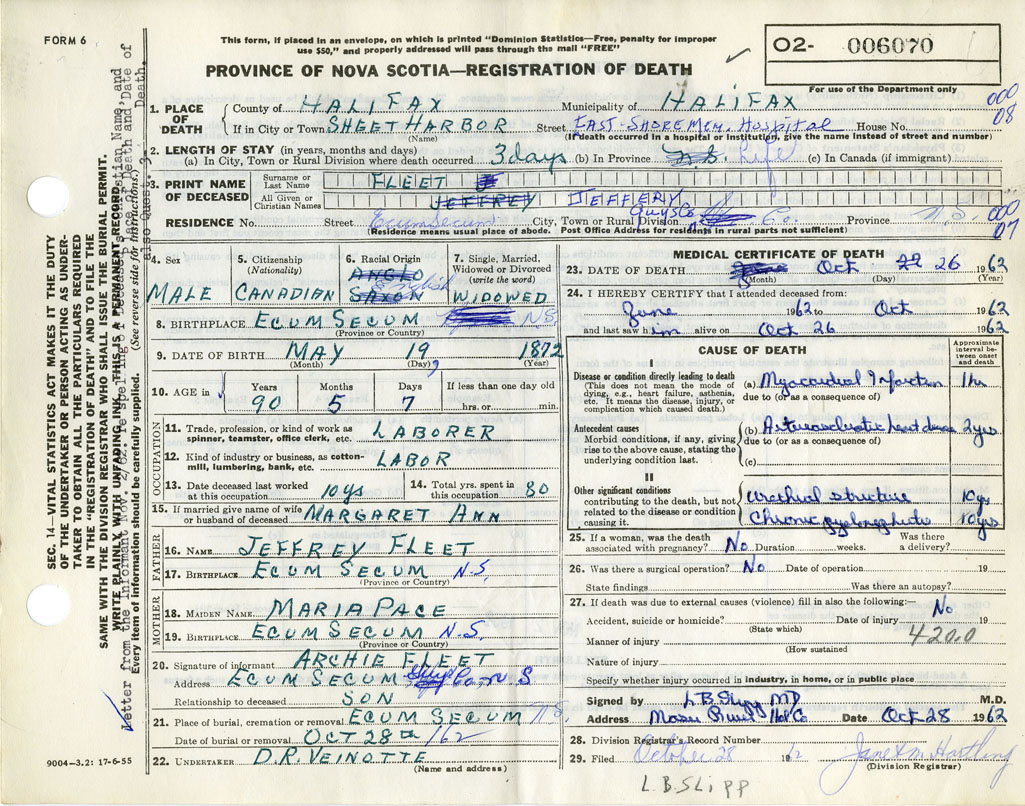 FORM 6
This form, if placed in an envelope, on which is printed "Dominion Statistics—Free, penalty for improper
use $50," and properly addressed will pass through the mail "FREE"
O2- 006070
PROVINCE OF NOVA SCOTIA—REGISTRATION OF DEATH
For use of the Department only
000
08
1. PLACE OF DEATH County of HALIFAX Municipality of HALIFAX
If in City or Town SHEET HARBOR Street EAST-SHORE MEM. Hospital House No.
(Name) (If death occurred in a hospital or institution, give the name instead of street and number)
2. LENGTH OF STAY (in years, months and days)
(a) In City, Town or Rural Division where death occurred 3 days (b) In Province N.S. Life (c) In Canada (if immigrant)
3. PRINT NAME OF DECEASED Surname or Last Name FLEET
All Given or Christian Names JEFFREY JEFFERY
RESIDENCE No. Street Ecum Secum City, Town or Rural Division Guys Co Co. Province N.S.
000
07
(Residence means usual place of abode. Post Office Address for residents in rural parts not sufficient)
4. Sex MALE
5. Citizenship (Nationality) CANADIAN
6. Racial Origin ANGLO SAXON English
7. Single, Married, Widowed or Divorced (write the word) WIDOWED
8. BIRTHPLACE ECUM SECUM NS
(Province or Country)
9. DATE OF BIRTH MAY 19 1872
(Month) (Day) (Year)
10. AGE in Years 90 Months 5 Days 7 If less than one day old hrs. or min.
OCCUPATION
11. Trade, profession, or kind of work as spinner, teamster, office clerk, etc. LABORER
12. Kind of industry or business, as cotton-mill, lumbering, bank, etc. LABOR
13. Date deceased last worked at this occupation 10 ys
14. Total yrs. spent in this occupation 80
15. If married give name of wife or husband of deceased MARGARET ANN
FATHER
16. NAME JEFFREY FLEET
17. BIRTHPLACE ECUM SECUM N.S,
(Province or Country)
MOTHER
18. MAIDEN NAME MARIA PACE
19. BIRTHPLACE ECUM SECUM N.S.
(Province or Country)
20. Signature of informant ARCHIE FLEET
Address ECUM SECUM Guys Co N S
Relationship to deceased SON
21. Place of burial, cremation or removal ECUM SECUM N S,
Date of burial or removal OCT 28th /62
22. UNDERTAKER D.R. VEINOTTE
(Name and address)
MEDICAL CERTIFICATE OF DEATH
23. DATE OF DEATH June Oct 22 26 1962
(Month) (Day) (Year)
24. I HEREBY CERTIFY that I attended deceased from:
June 1962 to Oct 1962
and last saw him alive on Oct 26 1962
CAUSE OF DEATH
Approximate interval between onset and death
I
Disease or condition directly leading to death
(This does not mean the mode of dying, e.g., heart failure, asthenia, etc. It means the disease, injury, or complication which caused death.)
(a) Myocardial Infarction 1 hr
due to (or as a consequence of)
Antecedent causes
Morbid conditions, if any, giving rise to the above cause, stating the underlying condition last.
(b) Arteriosclerotic heart disease 2 yrs
due to (or as a consequence of)
(c)
II
Other significant conditions
contributing to the death, but not related to the disease or condition causing it.
Urethral structure 10 yrs
Chronic pyelonephritis 10 yrs
25. If a woman, was the death associated with pregnancy? No Duration weeks. Was there a delivery?
26. Was there a surgical operation? No Date of operation 19
State findings Was there an autopsy?
27. If death was due to external causes (violence) fill in also the following:—
Accident, suicide or homicide? Date of injury No 19
(State which)
Manner of injury 420.0
(How sustained)
Nature of injury
Specify whether injury occurred in industry, in home, or in public place
Signed by L B Slipp MD M.D.
Address Hfx Co Date Oct 28 1962
28. Division Registrar's Record Number
29. Filed October 28 1962 Hartling
(Division Registrar)
L.B. SLIPP
SEC. 14—VITAL STATISTICS ACT MAKES IT THE DUTY
OF THE UNDERTAKER OR PERSON ACTING AS UNDER-
TAKER TO OBTAIN ALL THE PARTICULARS REQUIRED
IN THE "REGISTRATION OF DEATH" AND TO FILE THE
SAME WITH THE DIVISION REGISTRAR WHO SHALL ISSUE THE BURIAL PERMIT.
WRITE PLAINLY, WITH UNFADING INK. THIS IS A PERMANENT RECORD
Every item of information should be carefully supplied. (See reverse side for instructions.)
Letter from the informant Nov. 2/62. re spelling of Deceased's Christian Name, and
Year of Death and Date of
Death.
also Quest. 3.
9004-3.2: 17-6-55